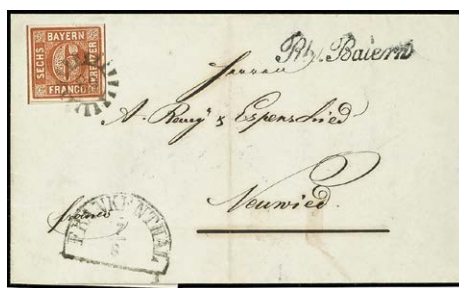 BAYERN
SECHS
KREUZER
FRANCO
6
Rh. Baiern
Herren
A. Remÿ & Espenschied
Neuwied.
franco
FRANKENTHAL